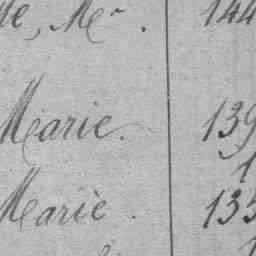 Mr. 144
Marie. 139
1
Marie. 135